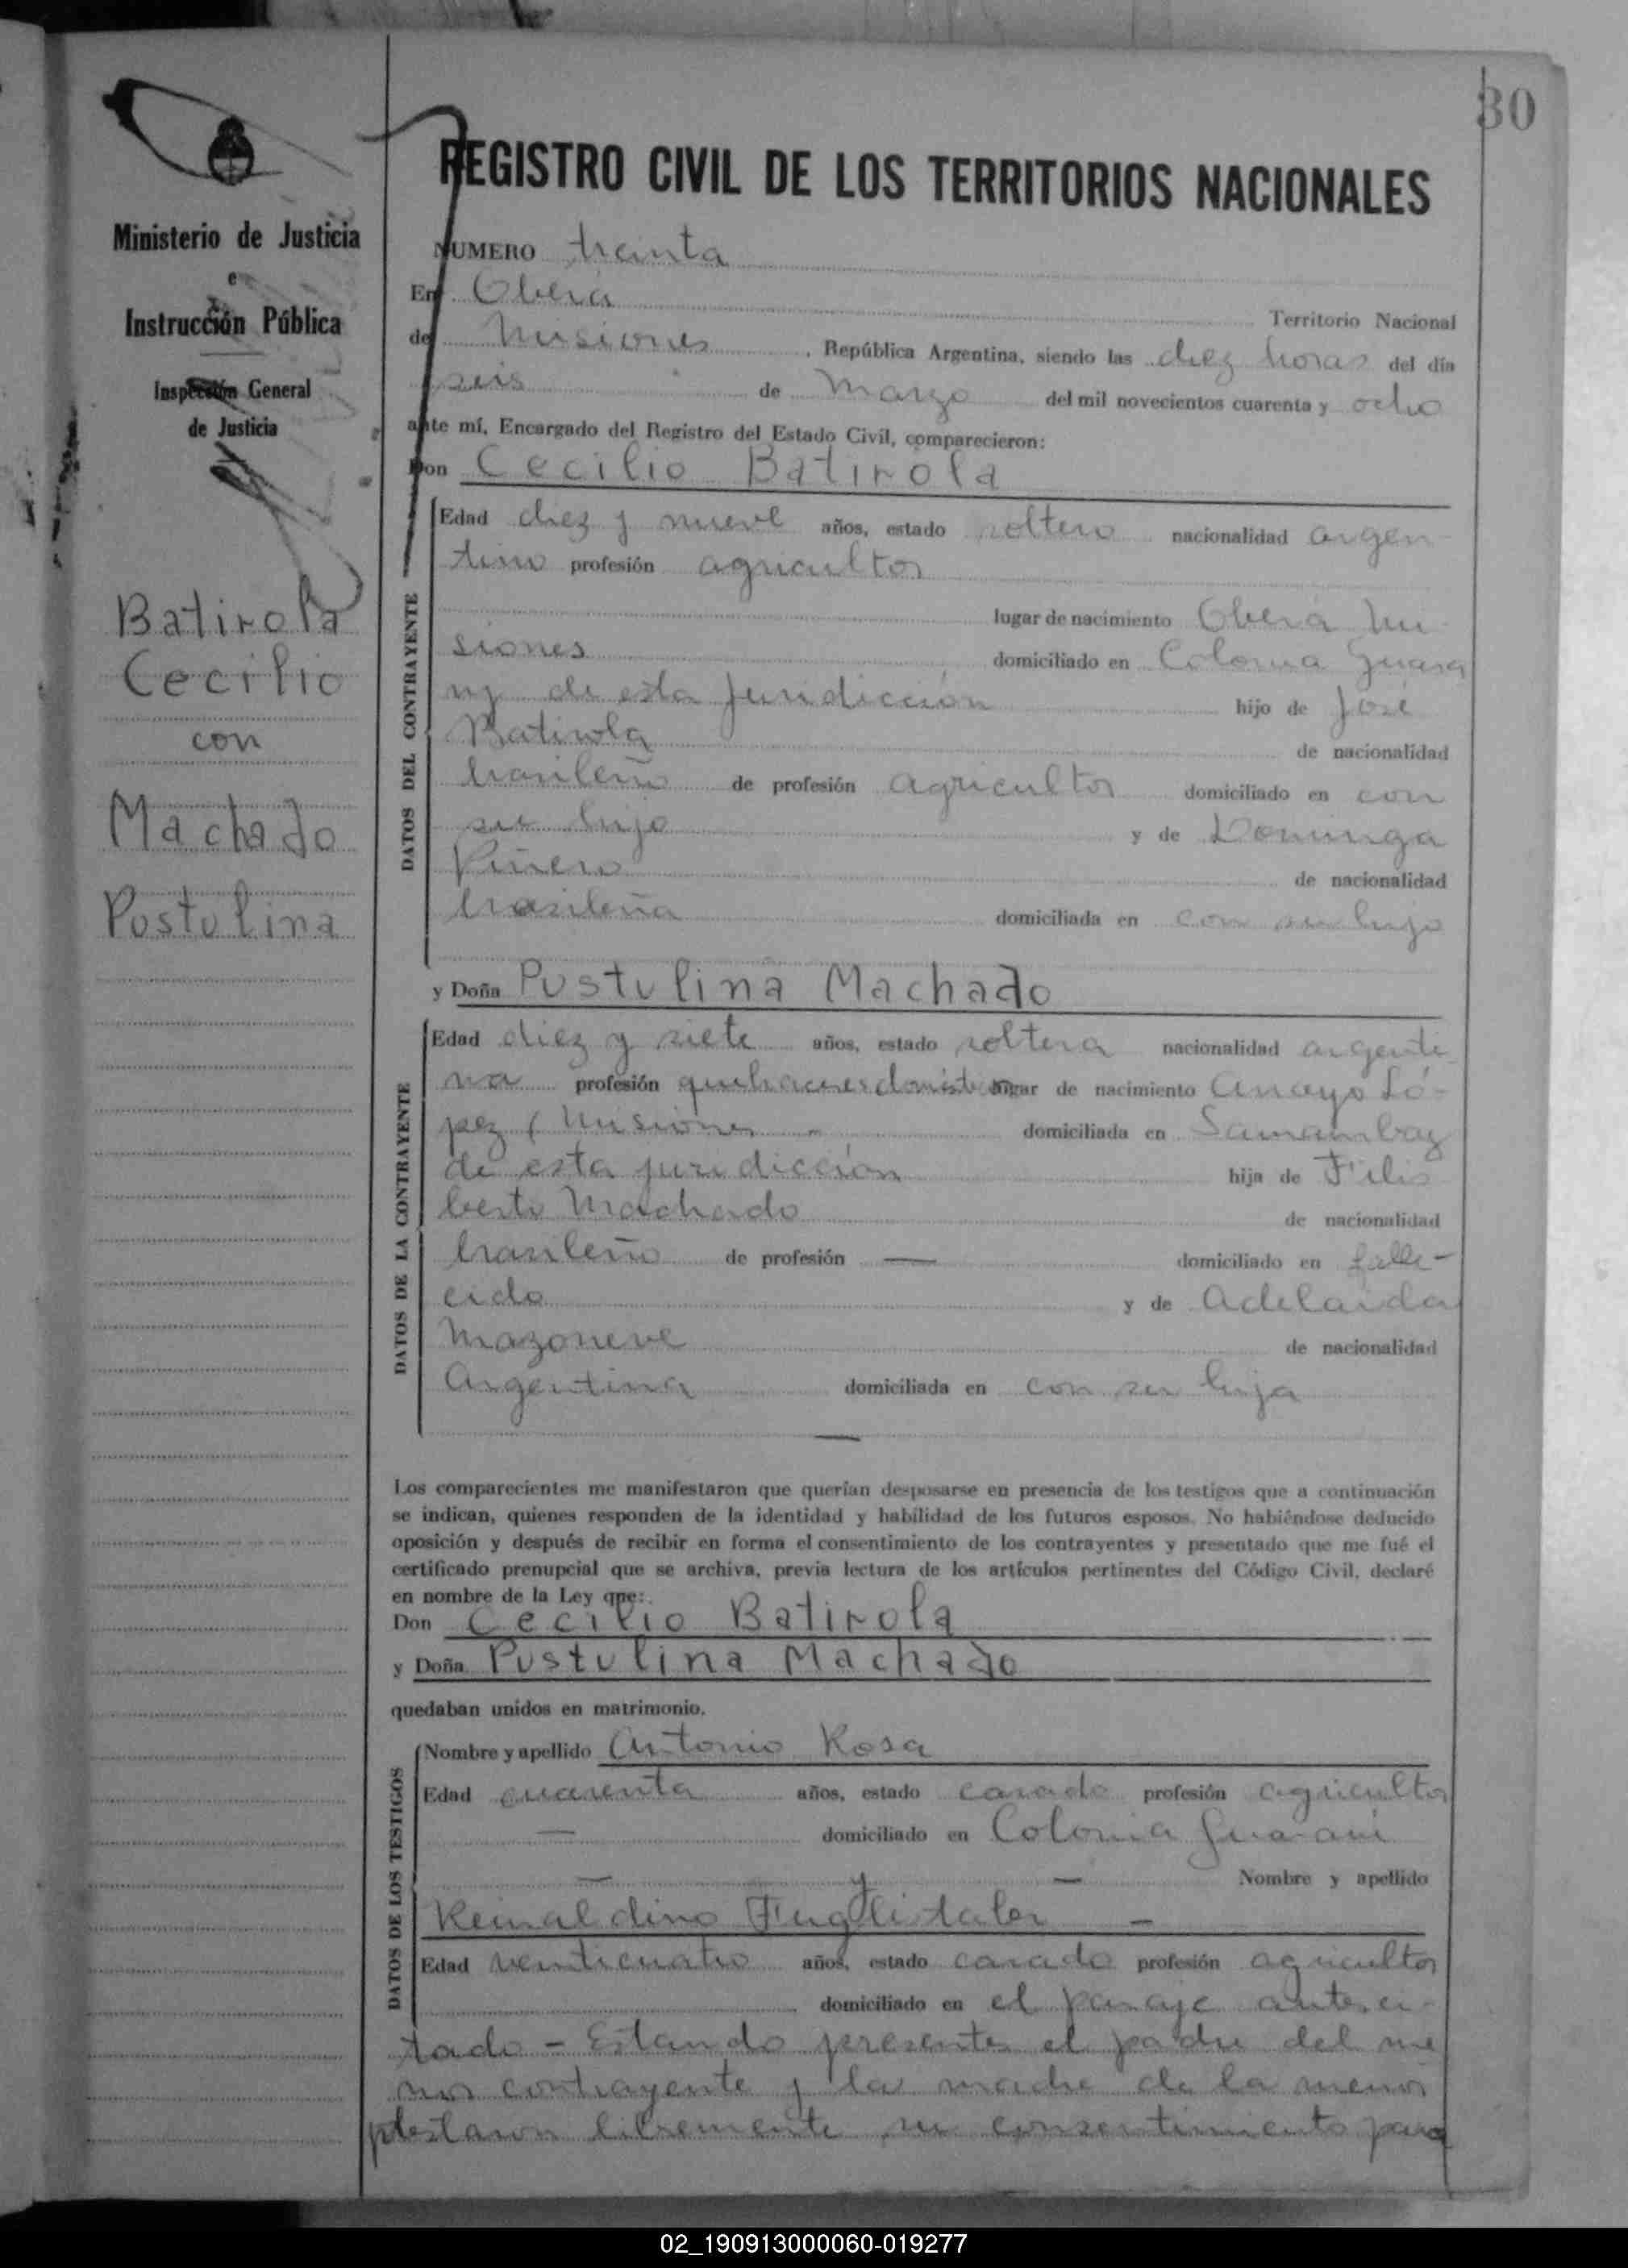 30
Ministerio de Justicia
e
Instrucción Pública
Inspección General
de Justicia
Batirola
Cecilio
con
Machado
Postulina
REGISTRO CIVIL DE LOS TERRITORIOS NACIONALES
NUMERO treinta
En Oberá
Territorio Nacional
de Misiones, República Argentina, siendo las diez horas del día
seis de Marzo del mil novecientos cuarenta y ocho
ante mí, Encargado del Registro del Estado Civil, comparecieron:
Don Cecilio Batirola
DATOS DEL CONTRAYENTE
Edad diez y nueve años, estado soltero nacionalidad argen-
tino profesión agricultor
lugar de nacimiento Oberá Mi-
siones domiciliado en Colonia Guara
ny de esta juridicción hijo de José
Batirola de nacionalidad
brasileño de profesión agricultor domiciliado en con
su hijo y de Dominga
Piñero de nacionalidad
brasileña domiciliada en con su hijo
y Doña Pustulina Machado
DATOS DE LA CONTRAYENTE
Edad diez y siete años, estado soltera nacionalidad argenti-
na profesión quehaceres domést lugar de nacimiento Arroyo Ló-
pez (Misiones domiciliada en Samambay
de esta juridicción hija de Filis
berto Machado de nacionalidad
brasileño de profesión — domiciliado en falle-
cido y de Adelaida
Mazoneve de nacionalidad
Argentina domiciliada en con su hija
Los comparecientes me manifestaron que querían desposarse en presencia de los testigos que a continuación
se indican, quienes responden de la identidad y habilidad de los futuros esposos. No habiéndose deducido
oposición y después de recibir en forma el consentimiento de los contrayentes y presentado que me fué el
certificado prenupcial que se archiva, previa lectura de los artículos pertinentes del Código Civil, declaré
en nombre de la Ley que:
Don Cecilio Batirola
y Doña Pustulina Machado
quedaban unidos en matrimonio.
DATOS DE LOS TESTIGOS
Nombre y apellido Antonio Rosa
Edad cuarenta años, estado casado profesión agricultor
— domiciliado en Colonia Guaraní
— y — Nombre y apellido
Reinaldino Fuglistaler —
Edad veinticuatro años, estado casado profesión agricultor
domiciliado en el paraje antes ci-
tado – Estando presentes el padre del me
nor contrayente y la madre de la menor
prestaron libremente su consentimiento para
02_190913000060-019277